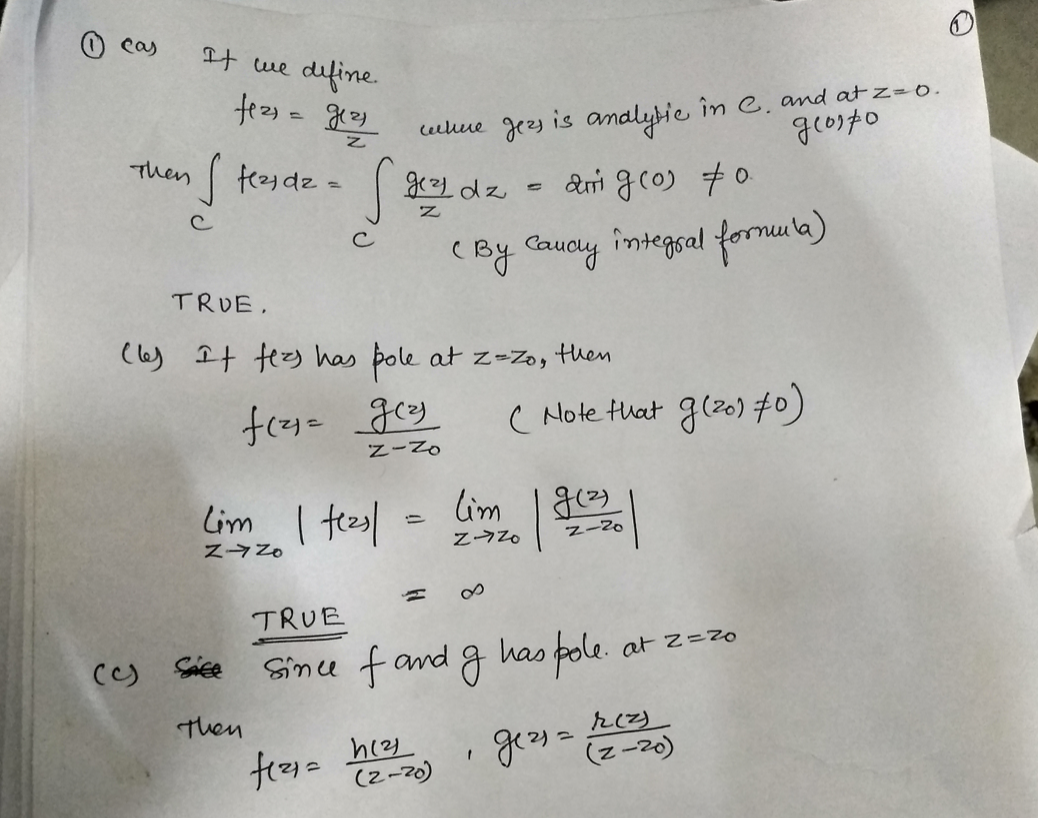 ①
① (a) If we define
f(z) = g(z)/z where g(z) is analytic in C. and at z=0. g(0)≠0
Then ∫_C f(z)dz = ∫_C g(z)/z dz = 2πi g(0) ≠ 0.
(By Caucy integral formula)
TRUE.
(b) If f(z) has pole at z=z₀, then
f(z) = g(z)/(z-z₀) (Note that g(z₀) ≠0)
lim_{z→z₀} |f(z)| = lim_{z→z₀} |g(z)/(z-z₀)|
= ∞
TRUE
(c) Since f and g has pole. at z=z₀
Then
f(z) = h(z)/(z-z₀) , g(z) = r(z)/(z-z₀)